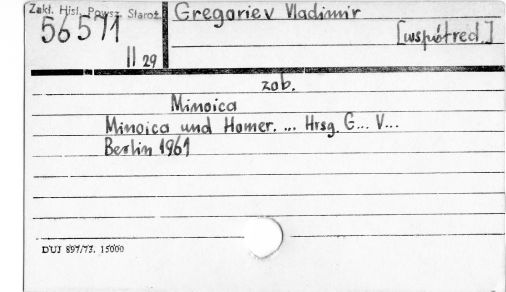 Zakł. Hist. Powsz. Staroż.
56571
II 29
Gregoriev Vladimir
[współred.]
zob.
Minoica
Minoica und Homer. ... Hrsg. G... V...
Berlin 1961
DUJ 897/73. 15000